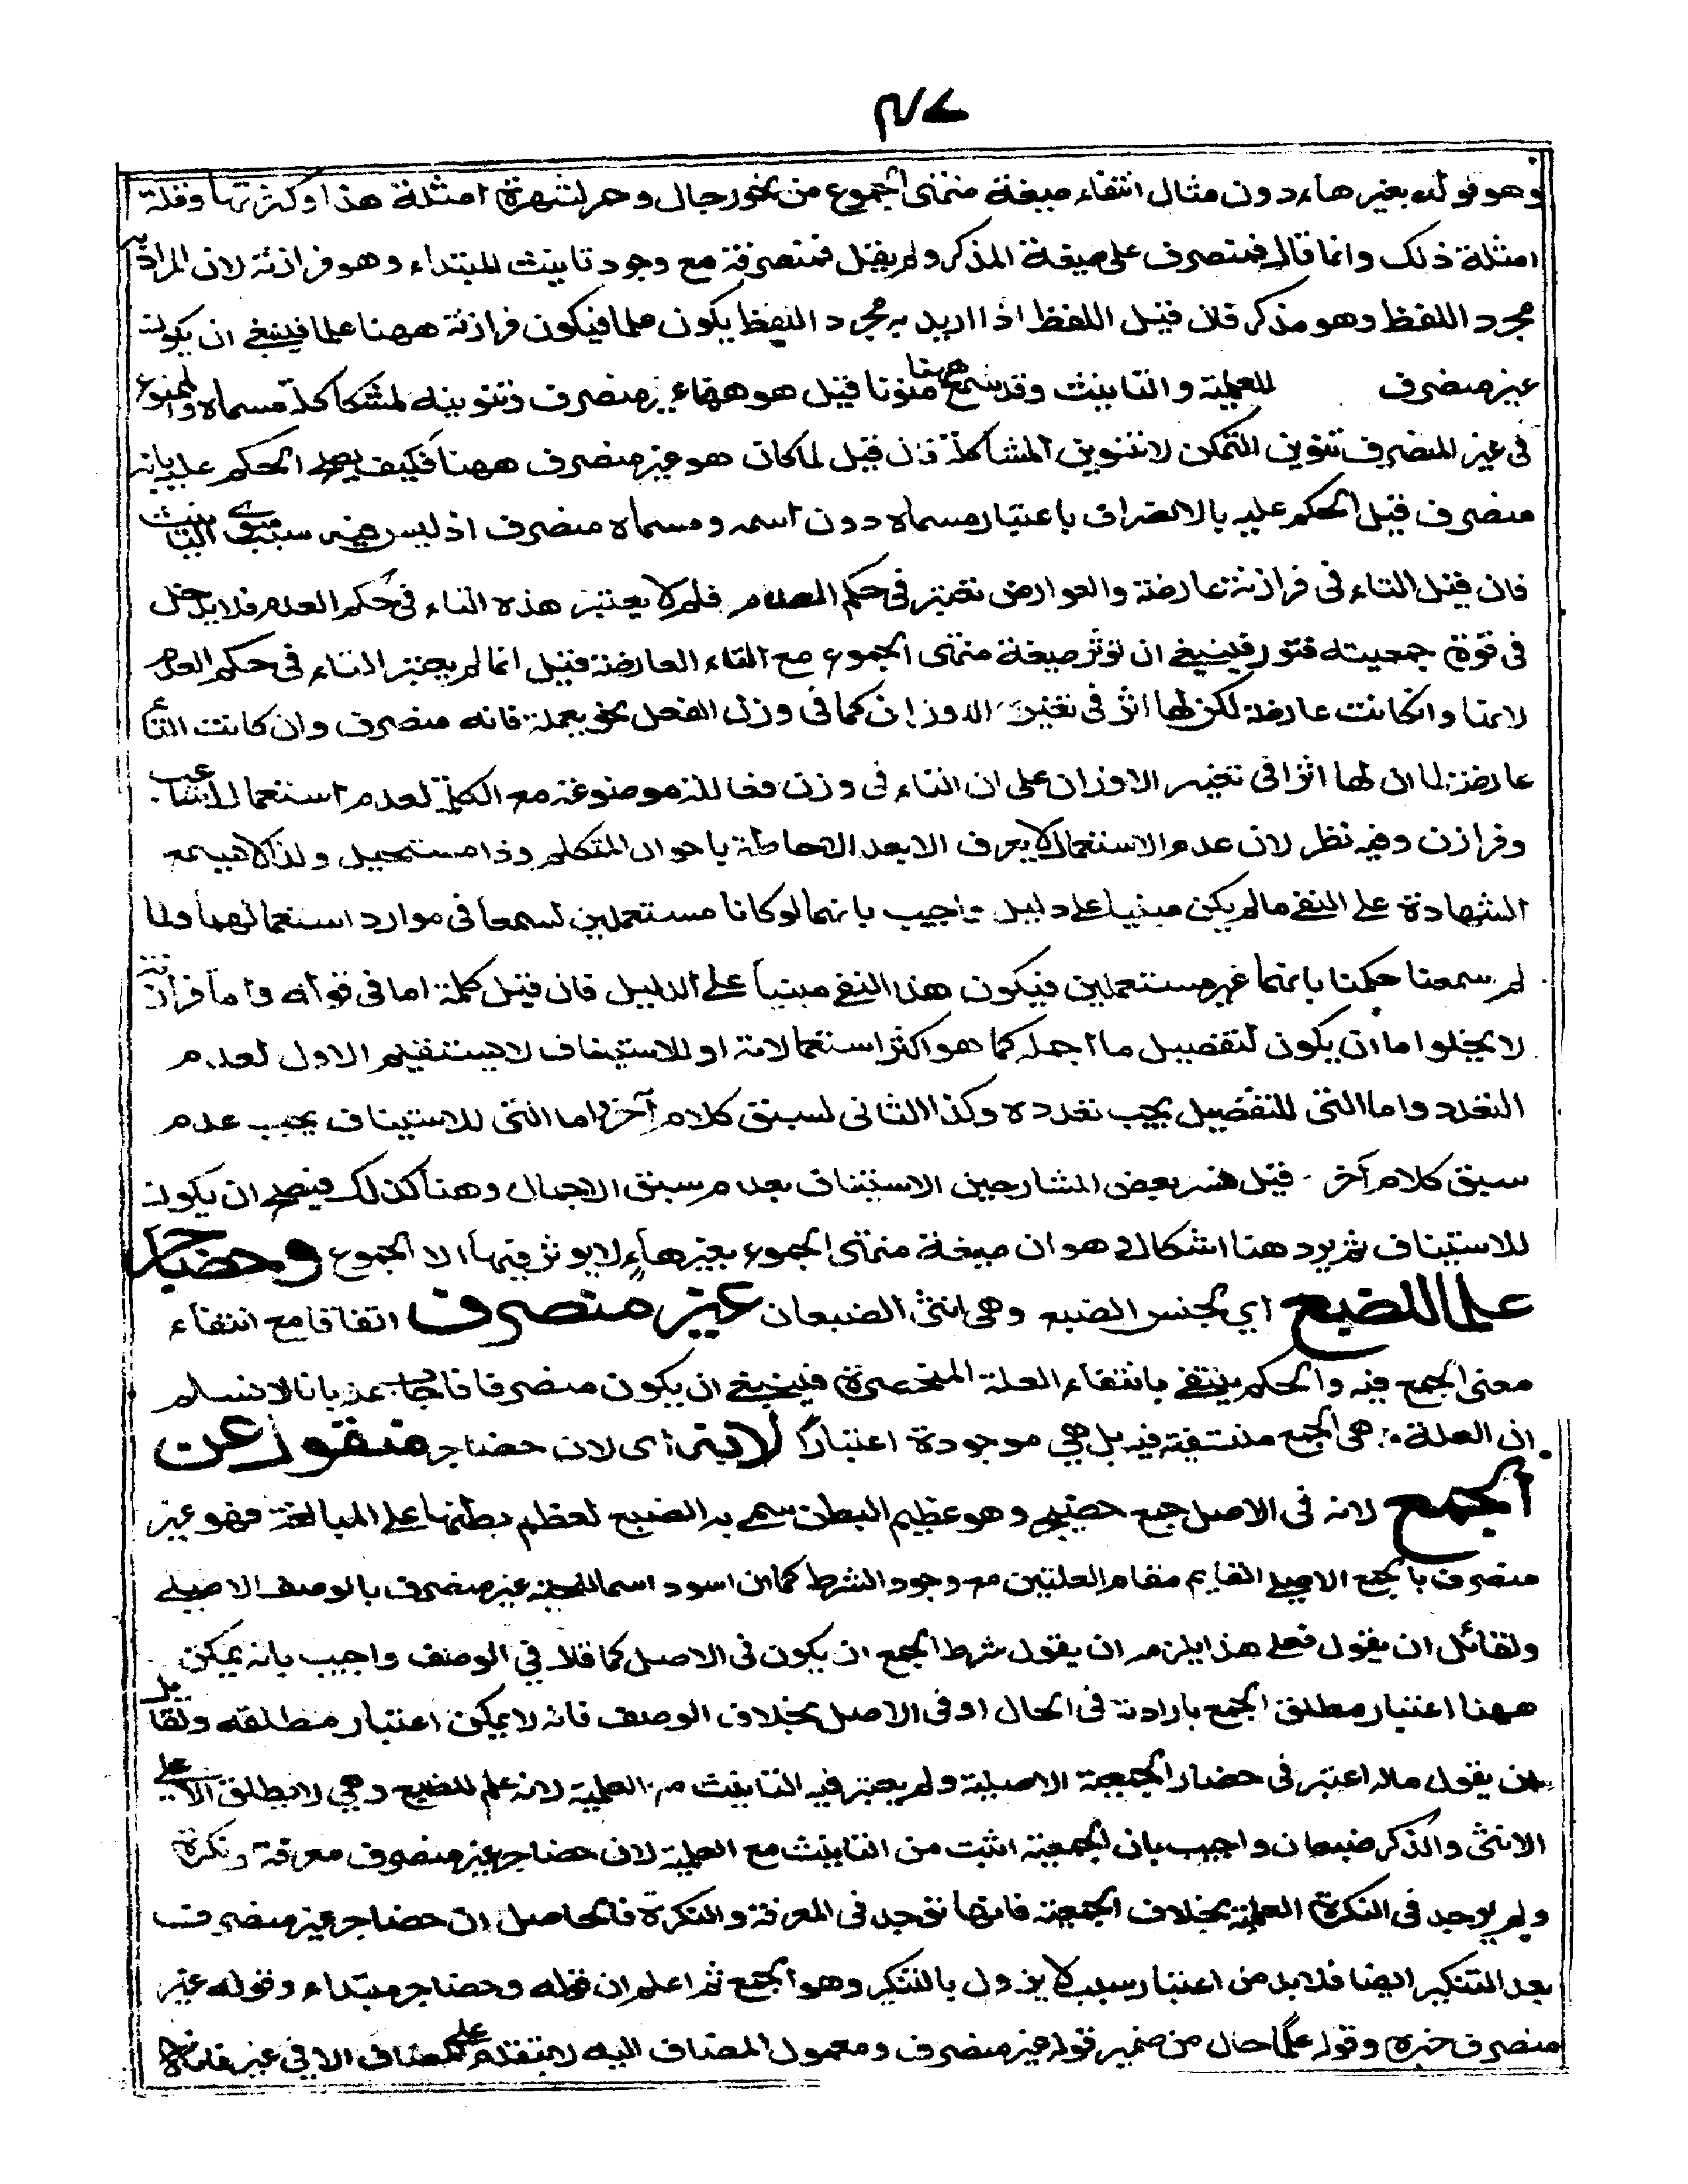 وهو قوله بغير هاء دون مثال انتفاء صيغة منتهى الجموع من نحو رجال وحمر لشهرة امثلة هذا وكثرتها وقلة
امثلة ذلك وانما قال فمنصرف على صيغة المذكر ولم يقل فمنصرفة مع وجود تانيث المبتداء وهو فرازنة لان المراد به
مجرد اللفظ وهو مذكر فان قيل اللفظ اذا اريد به مجرد اللفظ يكون علما فيكون فرازنة ههنا علما فينبغي ان يكون
غير منصرف للعلمية والتانيث وقد سمع ههنا منونا قيل هو ههنا غير منصرف وتنوينه لمشاكلة مسماه والممنوع
في غير المنصرف تنوين التمكن لا تنوين المشاكلة فان قيل لما كان هو غير منصرف ههنا فكيف يصح الحكم عليه بانه
منصرف قيل الحكم عليه بالانصراف باعتبار مسماه دون اسمه ومسماه منصرف اذ ليس فيه سبب سوى التانيث
فان قيل التاء في فرازنة عارضة والعوارض تعتبر في حكم العدم فلم لا يعتبر هذه التاء في حكم العدم فلا يدخل
في قوة جمعيته فتور فينبغي ان توثر صيغة منتهى الجموع مع التاء العارضة قيل انما لم يعتبر التاء في حكم العدم
لانها وان كانت عارضة لكن لها اثر في تغير الاوزان كما في وزن الفعل نحو يعملة فانه منصرف وان كانت التاء
عارضة لما ان لها اثرا في تغيير الاوزان على ان التاء في وزن فعاللة موضوعة مع الكلمة لعدم استعمال اشاعب
وفرازن وفيه نظر لان عدم الاستعمال لا يعرف الا بعد الاحاطة باحوال المتكلم وذا مستحيل ولذا لا يسمع
الشهادة على النفي ما لم يكن مبنيا على دليل واجيب بانهما لو كانا مستعملين لسمعا في موارد استعمالهما ولما
لم سمعنا حكمنا بانهما غير مستعملين فيكون هذا النفي مبنيا على الدليل فان قيل كلمة اما في قوله واما فرازنة
لا يخلوا اما ان يكون لتفصيل ما اجمله كما هو اكثر استعمالاته او للاستيناف لا يستقيم الاول لعدم
التعدد واما التي للتفصيل يجب تعدده وكذا الثاني لسبق كلام آخر اما التي للاستيناف يجب عدم
سبق كلام آخر قيل فسر بعض الشارحين الاستيناف بعدم سبق الاجمال وهنا كذلك فيصح ان يكون
للاستيناف ثم يرد هنا اشكال وهو ان صيغة منتهى الجموع بغير هاء لا يوثر فيها الا الجموع وحضاجر
علما للضبع اي لجنس الضبع وهى انثى الضبعان غير منصرف اتفاقا مع انتفاء
معنى الجمع فيه والحكم ينتفي بانتفاء العلة المنحصرة فينبغي ان يكون منصرفا فاجاب عنه بانا لا نسلم
ان العلة هى الجمع منتفية فيه بل هي موجودة اعتبارا لانه اى لان حضاجر منقول عن
الجمع لانه في الاصل جمع حضجر وهو عظيم البطن سمي به الضبع لعظم بطنها على المبالغة فهو غير
منصرف بالجمع الاصلي القايم مقام العلتين مع وجود الشرط كما ان اسود اسما للحية غير منصرف بالوصف الاصلي
ولقائل ان يقول فعلى هذا يلزمه ان يقول شرط الجمع ان يكون في الاصل كما قال في الوصف واجيب بانه يمكن
ههنا اعتبار مطلق الجمع بارادته في الحال او في الاصل بخلاف الوصف فانه لا يمكن اعتبار مطلقه ولقايل
ان يقول ماله اعتبر في حضاجر الجمعية الاصلية ولم يعتبر فيه التانيث مع العلمية لانه علم للضبع وهي لا يطلق الا على
الانثى والذكر ضبعان واجيب بان الجمعية اثبت من التانيث مع العلمية لان حضاجر غير منصرف معرفة ونكرة
ولم يوجد في النكرة العلمية بخلاف الجمعية فانها توجد في المعرفة والنكرة فالحاصل ان حضاجر غير منصرف
بعد التنكير ايضا فلابد من اعتبار سبب لا يزول بالتنكير وهو الجمع ثم اعلم ان قوله وحضاجر مبتداء وقوله غير
منصرف خبره وقوله علما حال من ضمير قوله غير منصرف ومعمول المضاف اليه لا يتقدم على المضاف الا في غير فانه